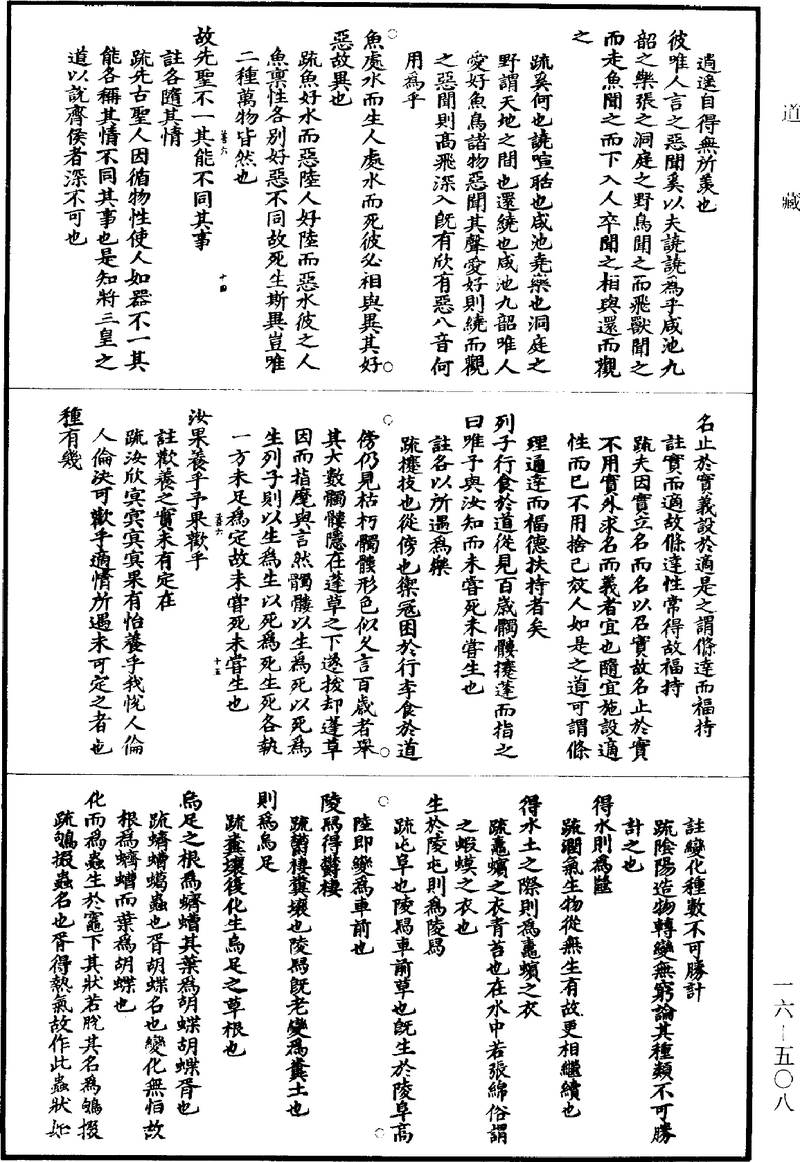 道藏
逍遙自得無所羨也
彼唯人言之惡聞奚以夫譊譊為乎咸池九
韶之樂張之洞庭之野鳥聞之而飛獸聞之
而走魚聞之而下入人卒聞之相與還而觀
之
疏奚何也譊喧聒也咸池堯樂也洞庭之
野謂天地之間也還繞也咸池九韶唯人
愛好魚鳥諸物惡聞其聲愛好則繞而觀
之惡聞則高飛深入既有欣有惡八音何
用為乎
魚處水而生人處水而死彼必相與異其好
惡故異也
疏魚好水而惡陸人好陸而惡水彼之人
魚稟性各別好惡不同故死生斯異豈唯
二種萬物皆然也
故先聖不一其能不同其事
註各隨其情
疏先古聖人因循物性使人如器不一其
能各稱其情不同其事也是知將三皇之
道以說齊侯者深不可也
名止於實義設於適是之謂條達而福持
註實而適故條達性常得故福持
疏夫因實立名而名以召實故名止於實
不用實外求名而義者宜也隨宜施設適
性而已不用捨己效人如是之道可謂條
理通達而福德扶持者矣
列子行食於道從見百歲髑髏攓蓬而指之
曰唯予與汝知而未嘗死未嘗生也
註各以所遇為樂
疏攓拔也從傍也禦冠困於行李食於道
傍仍見枯朽髑髏形色似久言百歲者舉
其大數髑髏隱在蓬草之下遂拔却蓬草
因而指麾與言然髑髏以生為死以死為
生列子則以生為生以死為死生死各執
一方未足為定故未嘗死未嘗生也
汝果養乎予果歡乎
註歡養之實未有定在
疏汝欣冥冥冥冥果有怡養乎我悅人倫
人倫決可歡乎適情所遇未可定之者也
種有幾
註變化種數不可勝計
疏陰陽造物轉變無窮論其種類不可勝
計之也
得水則為㡭
疏潤氣生物從無生有故更相繼續也
得水土之際則為鼃蠙之衣
疏鼃蠙之衣青苔也在水中若張綿俗謂
之蝦蟆之衣也
生於陵屯則為陵舄
疏屯阜也陵舄車前草也既生於陵阜高
陸即變為車前也
陵舄得鬱棲
疏鬱棲糞壤也陵舄既老變為糞土也
則為烏足
疏糞壤復化生烏足之草根也
烏足之根為蠐螬其葉為胡蝶胡蝶胥也
疏蠐螬蝎蟲也胥胡蝶名也變化無恒故
根為蠐螬而葉為胡蝶也
化而為蟲生於竈下其狀若脫其名為鴝掇
疏鴝掇蟲名也胥得熱氣故作此蟲狀如
一六—五〇八